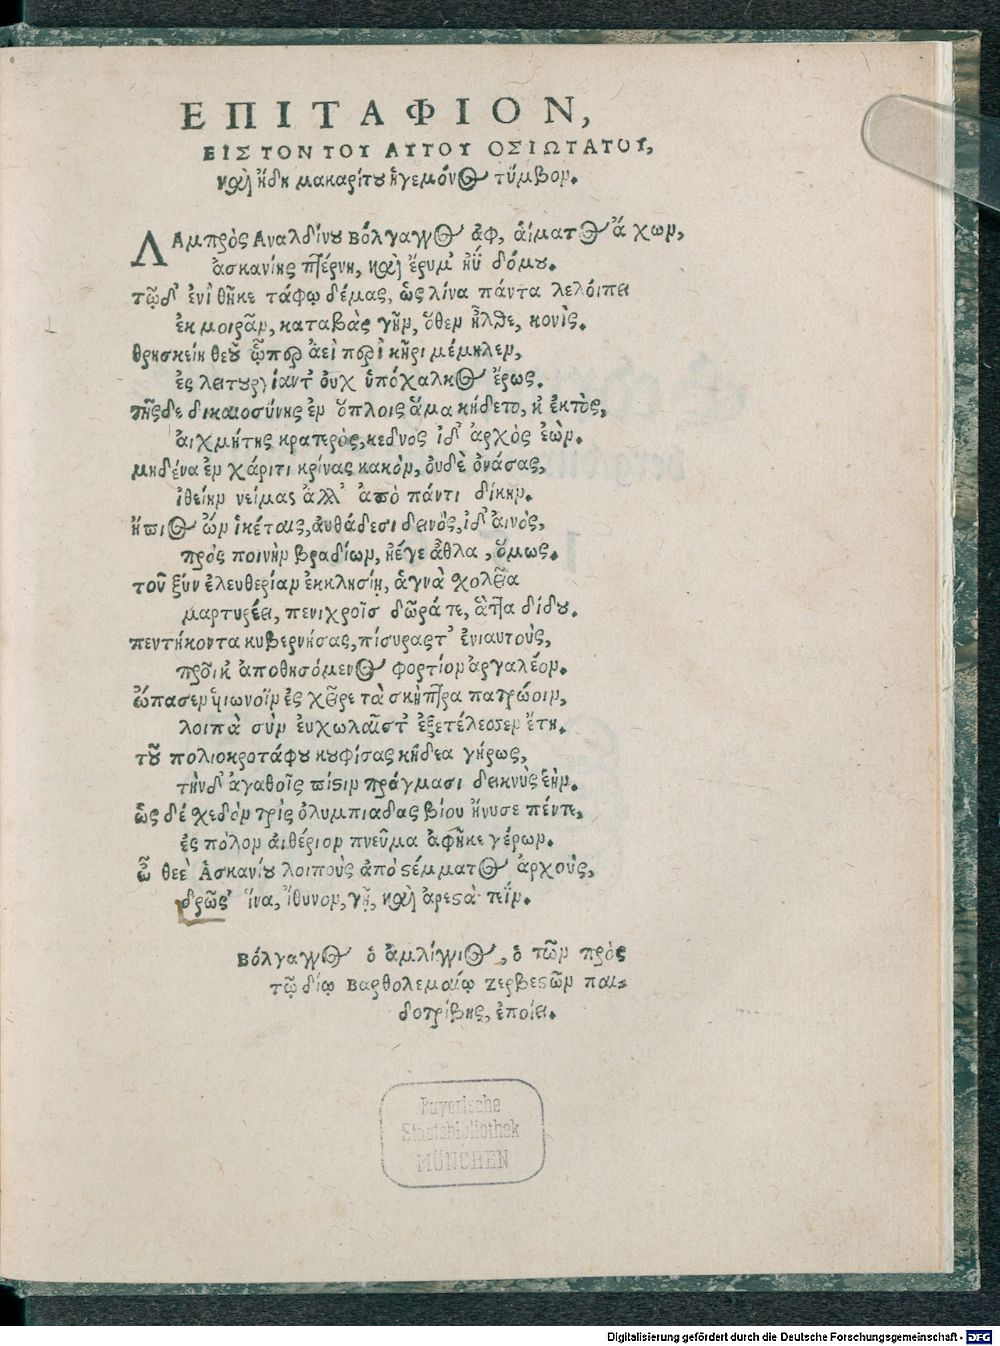 ΕΠΙΤΑΦΙΟΝ,
ΕΙΣ ΤΟΝ ΤΟΥ ΑΥΤΟΥ ΟΣΙΩΤΑΤΟΥ,
καὶ ἤδη μακαρίτου ἡγεμόνος τύμβον.
ΛΑμπρὸς Αναλδίνου βόλγαγγος ἀφ, αἵματος ἄ χων,
ἀσκανίης πτέρνη, καὶ ἔρυμ' ἠῢ δόμου.
τῷδ' ἐνὶ θῆκε τάφῳ δέμας, ὡς λίνα πάντα λελόιπει
ἐκ μοιρᾶν, καταβὰς γῆν, ὅθεν ἦλθε, κονὶς.
θρησκείη θεοῦ ᾧπερ ἀεὶ περὶ κῆρι μέμηλεν,
ἐς λειτουργίαντ' ὀυχ ὑπόχαλκος ἔρως.
τῆςδε δικαιοσύνης ἐν ὅπλοις ἅμα κήδετο, κ' ἐκτὸς,
ἀιχμήτης κρατερὸς, κεδνος ἰδ' ἀρχὸς ἐὼν.
μηδένα ἐν χάριτι κρίνας κακὸν, ὀυδὲ ὀνάσας,
ἰθείην νείμας ἀλλ' ἀπὸ πάντι δίκην.
ἤπιος ὢν ἱκέταις, ἀυθάδεσι δεινὸς, ἰδ' ἀινὸς,
πρὸς ποινὴν βραδίων, ἠέγε ἆθλα, ὅμως.
τοῦ ξὺν ἐλευθερίαν ἐκκλησίῃ, ἁγνὰ χολεῖα
μαρτυρέει, πενιχροῖσ δῶρά τε, ἅττα δίδου.
πεντήκοντα κυβερνήσας, πίσυραςτ' ἐνιαυτοὺς,
προῖκ' ἀποθησόμενος φορτίον ἀργαλέον.
ὤπασεν ὑιωνοῖν ἐς χεῖρε τὰ σκῆπτρα πατρώοιν,
λοιπὰ σὺν ἐυχωλαῖστ' ἐξετέλεσσεν ἔτη.
τοῦ πολιοκροτάφου κουφίσας κήδεα γήρως,
τὴνδ' ἀγαθοῖς πίστιν πράγμασι δεικνὺς ἑὴν.
ὡς δέ χεδὸν τρὶς ὀλυμπιαδας βίου ἤνυσε πέντε,
ἐς πόλον ἀιθέριον πνεῦμα ἀφῆκε γέρων.
ὦ θεε' Ἀσκανίου λοιποὺς ἀπὸ στέμματος ἀρχοὺς,
δρῶς' ἵνα, ἴθυνον, γῇ, καὶ ἀρεστὰ τεΐν.
βόλγαγγος ὁ ἀμλίγγιος, ὁ τῶν πρὸς
τῷ δίῳ βαρθολεμαίῳ ζερβεστῶν παι-
δοτρίβης, ἐποίει.
Bayerische
Staatsbibliothek
MÜNCHEN
Digitalisierung gefördert durch die Deutsche Forschungsgemeinschaft - DFG